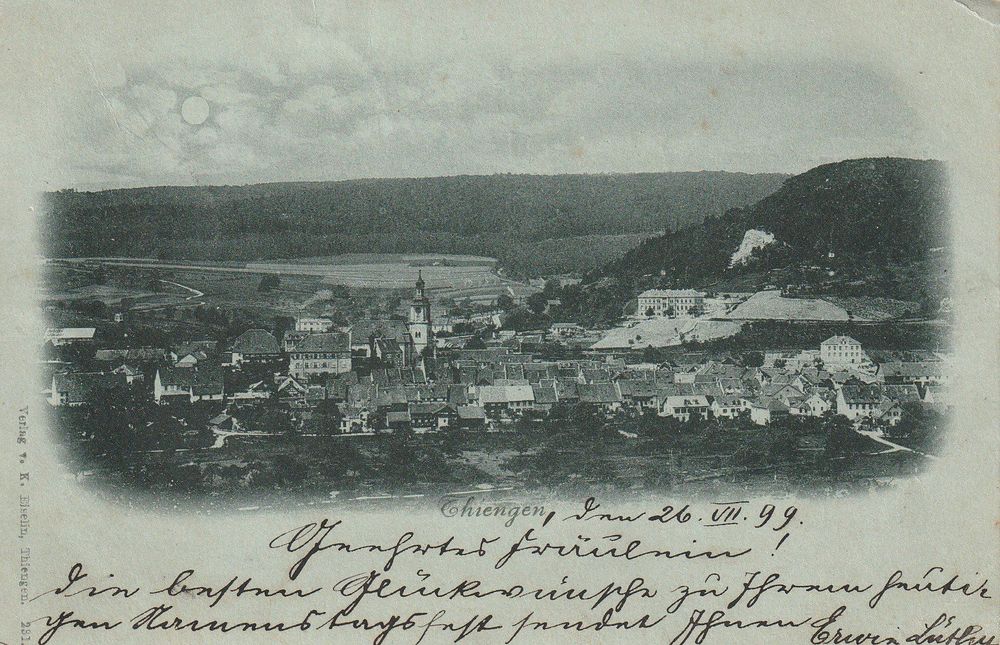 Thiengen, den 26. VII. 99.
Geehrtes Fräulein!
Die besten Glückwünsche zu Ihrem heutir
gen Namenstagsfest sendet Ihnen Erwin Lüthy
Verlag v. K. Eiselin, Thiengen. 231.